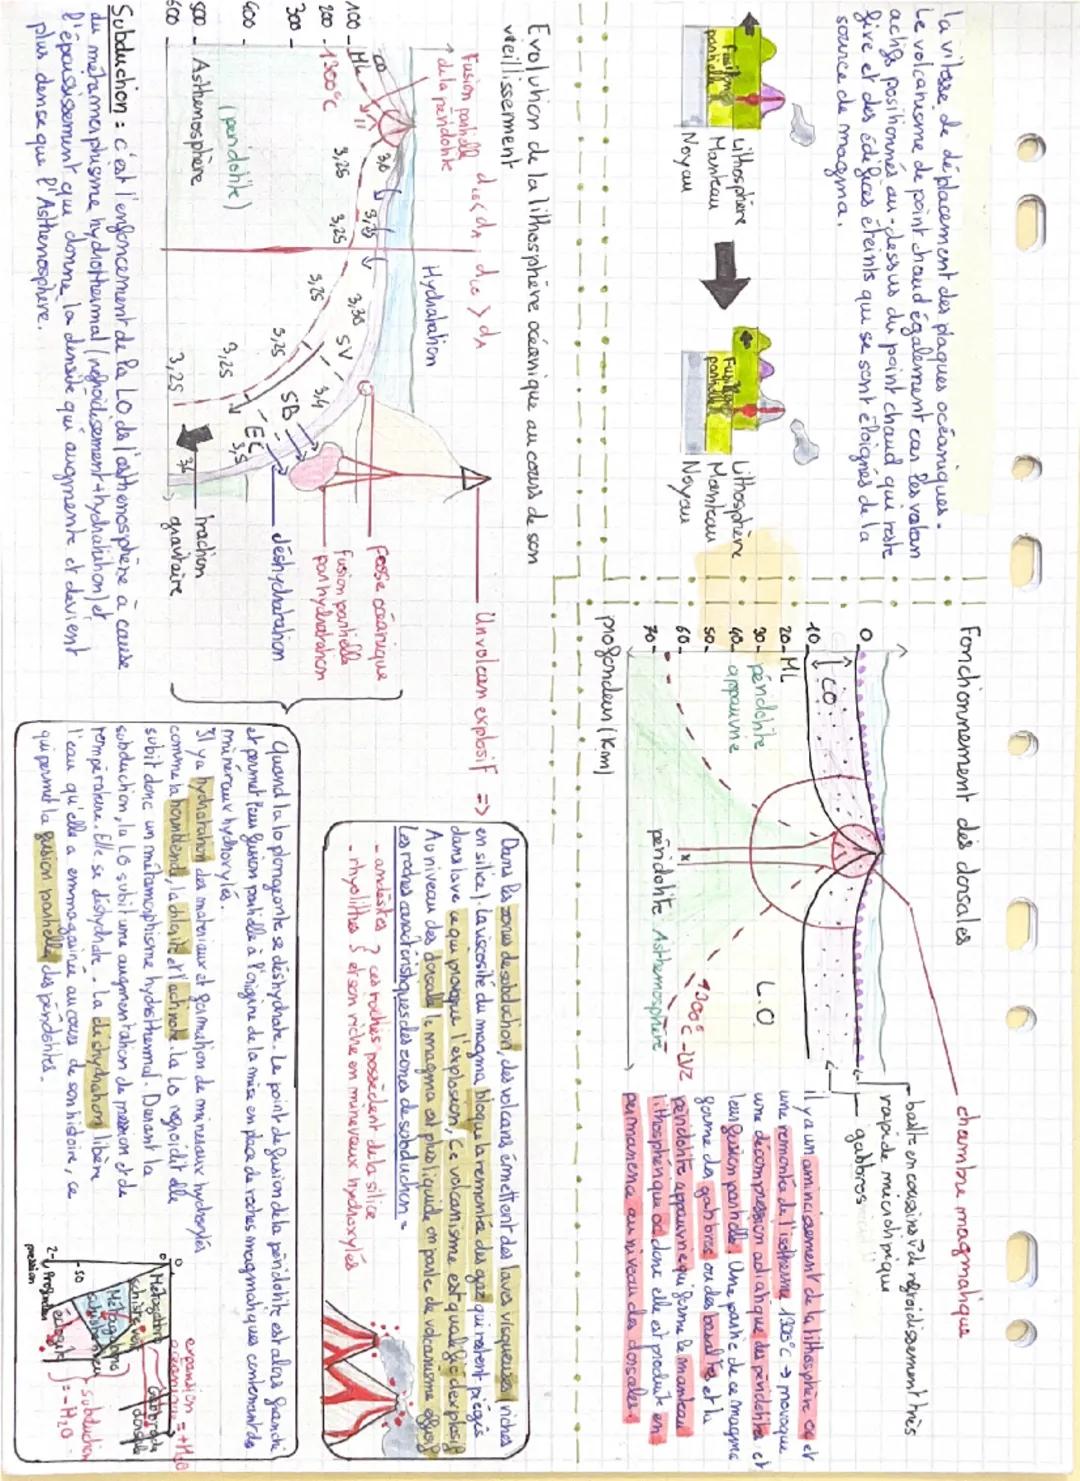 la vitesse de déplacement des plaques océaniques.
Le volcanisme de point chaud également car les volcan
actifs positionnés au-dessus du point chaud qui reste
fixe et des édifices éteints qui se sont éloignés de la
source de magma.
Fusion
partielle
Lithosphère
Manteau
Noyau
Fusion
partielle
Lithosphère
Manteau
Noyau
Evolution de la lithosphère océanique au cours de son
vieillissement
Fusion partielle
de la péridotite
dLO < dA
dLO > dA
Hydratation
100
200
300
400
500
600
CO
ML
1300°C
3,25
3,25
3,25
3,25
3,25
3,25
3,30
3,4
3,5
SV
SB
EC
(péridotite)
Asthénosphère
Un volcan explosif =>
Fosse océanique
Fusion partielle
par hydratation
déshydratation
traction
gravitaire
Subduction : c'est l'enfoncement de la LO ds l'asthénosphère à cause
du métamorphisme hydrothermal (refroidissement + hydratation) et
l'épaississement qui donne la densité qui augmente et devient
plus dense que l'Asthénosphère.
Fonctionnement des dorsales
chambre magmatique
basalte en coussins
rapide microlitique
gabbros
0
10
20
30
40
50
60
70
CO
ML
péridotite
appauvrie
L.O
1300°C - LVZ
péridotite Asthénosphère
profondeur (Km)
Il y a un amincissement de la lithosphère oc et
une remontée de l'isotherme 1300°C → provoque
une décompression adiabatique des péridotites et
leur fusion partielle. Une partie de ce magma
forme des gabbros ou des basaltes et la
péridotite appauvrie qui forme le manteau
lithosphérique oc donc elle est produite en
permanence au niveau des dorsales.
Dans les zones de subduction, des volcans émettent des laves visqueuses (riches
en silice). La viscosité du magma bloque la remontée des gaz qui restent piégés
dans lave ce qui provoque l'explosion, Ce volcanisme est qualifié d'explosif
Au niveau des dorsales le magma est plus liquide on parle de volcanisme effusif
Les roches caractéristiques des zones de subduction =
- andésites } ces roches possèdent de la silice
- rhyolithes } et son riche en minéraux hydroxylés
Quand la lo plongeante se déshydrate. Le point de fusion de la péridotite est alors franchi
et permet leur fusion partielle à l'origine de la mise en place de roches magmatiques contenant des
minéraux hydroxylés.
Il y a hydratation des matériaux et formation de minéraux hydroxylés
comme la hornblende, la chlorite et l'actinote. la lo refroidit elle
subit donc un métamorphisme hydrothermal. Durant la
subduction, la LO subit une augmentation de pression et de
température. Elle se déshydrate. La déshydratation libère
l'eau qu'elle a emmagasinée au cours de son histoire, ce
qui permet la fusion partielle des péridotites.
expansion
océanique = + H₂O
Métagabbro
schiste vert
Métagabbro
schiste bleu
éclogite
Gabbro de
dorsale
subduction
= - H₂O
0
0
50
2
pression
Profondeur